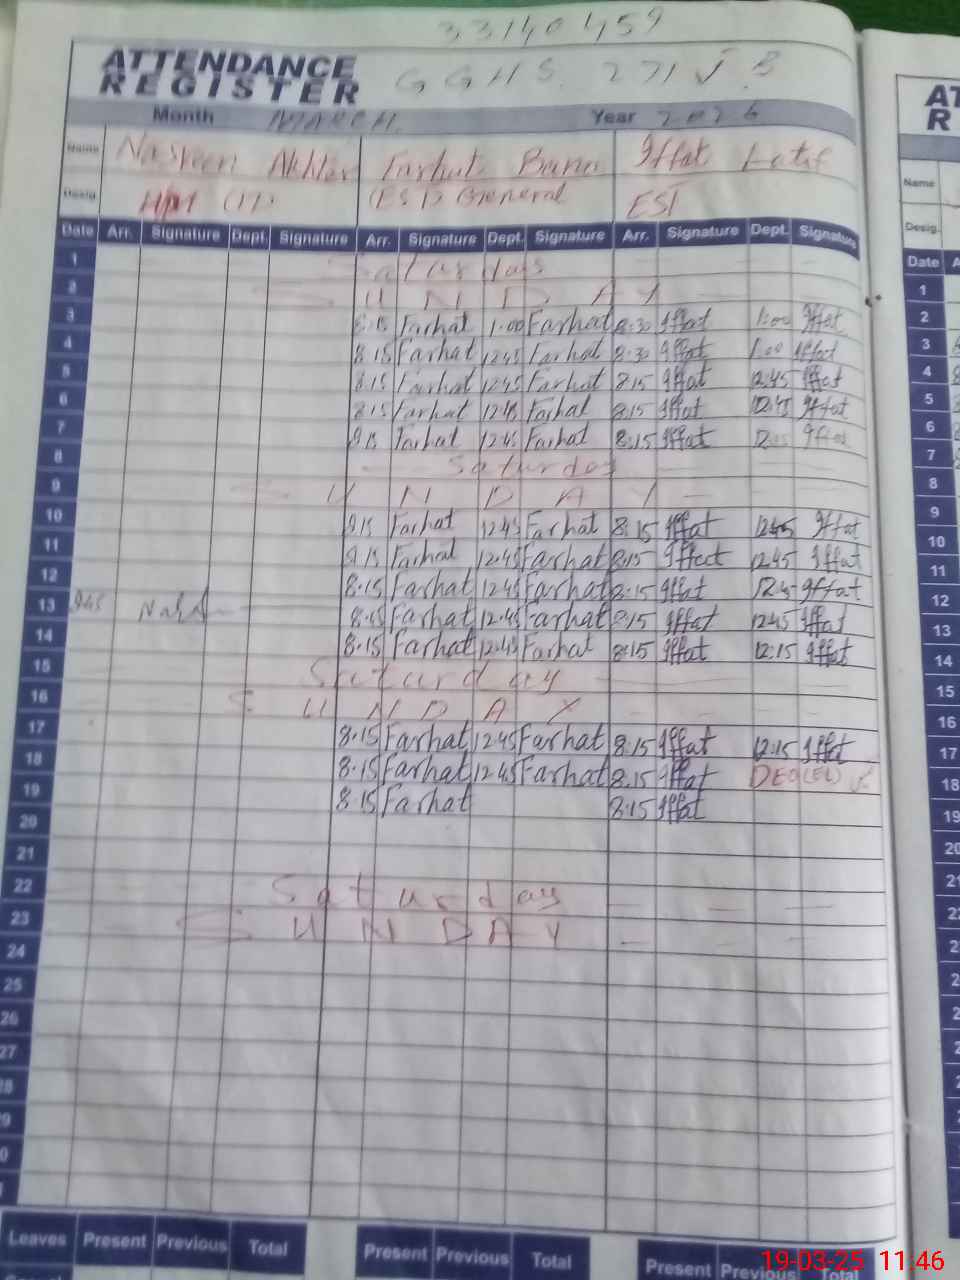 33140459
ATTENDANCE
REGISTER
GGHS. 271 J.B
Month MARCH. Year
Name Nasreen Akhter Farhat Bano Iffat Latif
Desig. HM (17) (EST) General EST
Date Arr. Signature Dept. Signature Arr. Signature Dept. Signature Arr. Signature Dept. Signature
1 Saturday
2 S U N D A Y
3 8:15 Farhat 1:00 Farhat 8:30 Iffat 1:00 Iffat
4 8:15 Farhat 12:45 Farhat 8:30 Iffat 1:00 Iffat
5 8:15 Farhat 12:45 Farhat 8:15 Iffat 12:45 Iffat
6 8:15 Farhat 12:45 Farhat 8:15 Iffat 12:45 Iffat
7 Farhat 12:45 Farhat 8:15 Iffat Iffat
8 Saturday
9 S U N D A Y
10 Farhat 12:45 Farhat 8:15 Iffat 12:45 Iffat
11 Farhat 12:45 Farhat 8:15 Iffat 12:45 Iffat
12 8:15 Farhat 12:45 Farhat 8:15 Iffat Iffat
13 Farhat 12:45 Farhat 8:15 Iffat 12:45 Iffat
14 8:15 Farhat 12:45 Farhat 8:15 Iffat 12:15 Iffat
15 Saturday
16 S U N D A Y
17 8:15 Farhat 12:45 Farhat 8:15 Iffat 12:15 Iffat
18 8:15 Farhat 12:45 Farhat 8:15 Iffat DEO(EW)
19 8:15 Farhat 8:15 Iffat
20
21
22 Saturday
23 S U N D A Y
24
25
26
27
28
29
Leaves Present Previous Total Present Previous Total Present Previous Total
19-03-25 11:46
AT
R
Name
Desig.
Date A
1
2
3
4
5
6
7
8
9
10
11
12
13
14
15
16
17
18
19
20
21
22